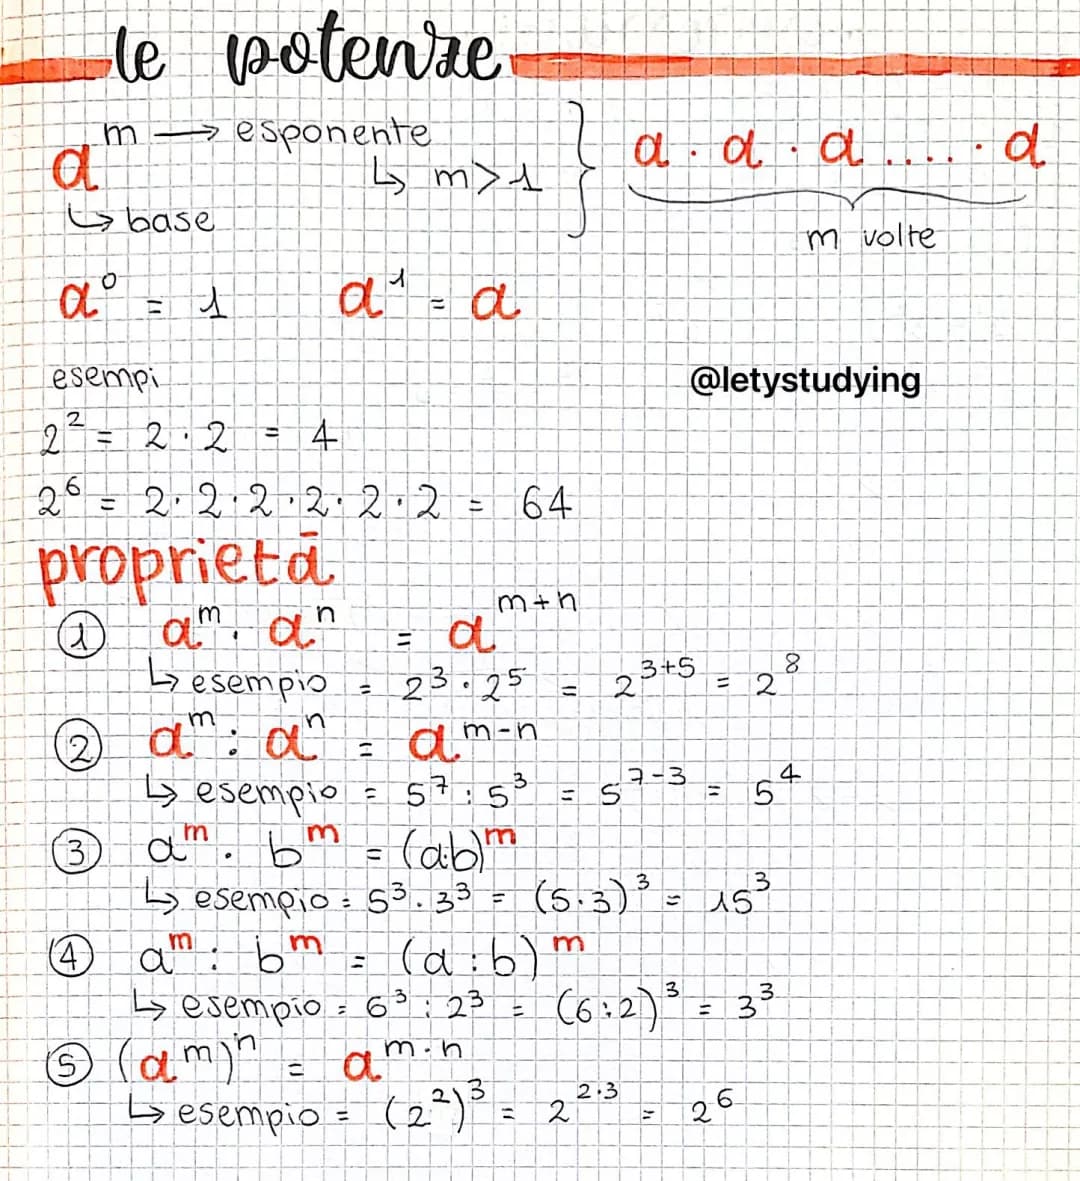 le potenze
a^m → esponente
↳ m>1 } a · a · a .... · a
↳ base
m volte
a^0 = 1 a^1 = a
esempi
@letystudying
2^2 = 2 · 2 = 4
2^6 = 2 · 2 · 2 · 2 · 2 · 2 = 64
proprietā
① a^m · a^n = a^(m+n)
↳ esempio = 2^3 · 2^5 = 2^(3+5) = 2^8
② a^m : a^n = a^(m-n)
↳ esempio = 5^7 : 5^3 = 5^(7-3) = 5^4
③ a^m · b^m = (a·b)^m
↳ esempio = 5^3 · 3^3 = (5·3)^3 = 15^3
④ a^m : b^m = (a:b)^m
↳ esempio = 6^3 : 2^3 = (6:2)^3 = 3^3
⑤ (a^m)^n = a^(m·n)
↳ esempio = (2^2)^3 = 2^(2·3) = 2^6